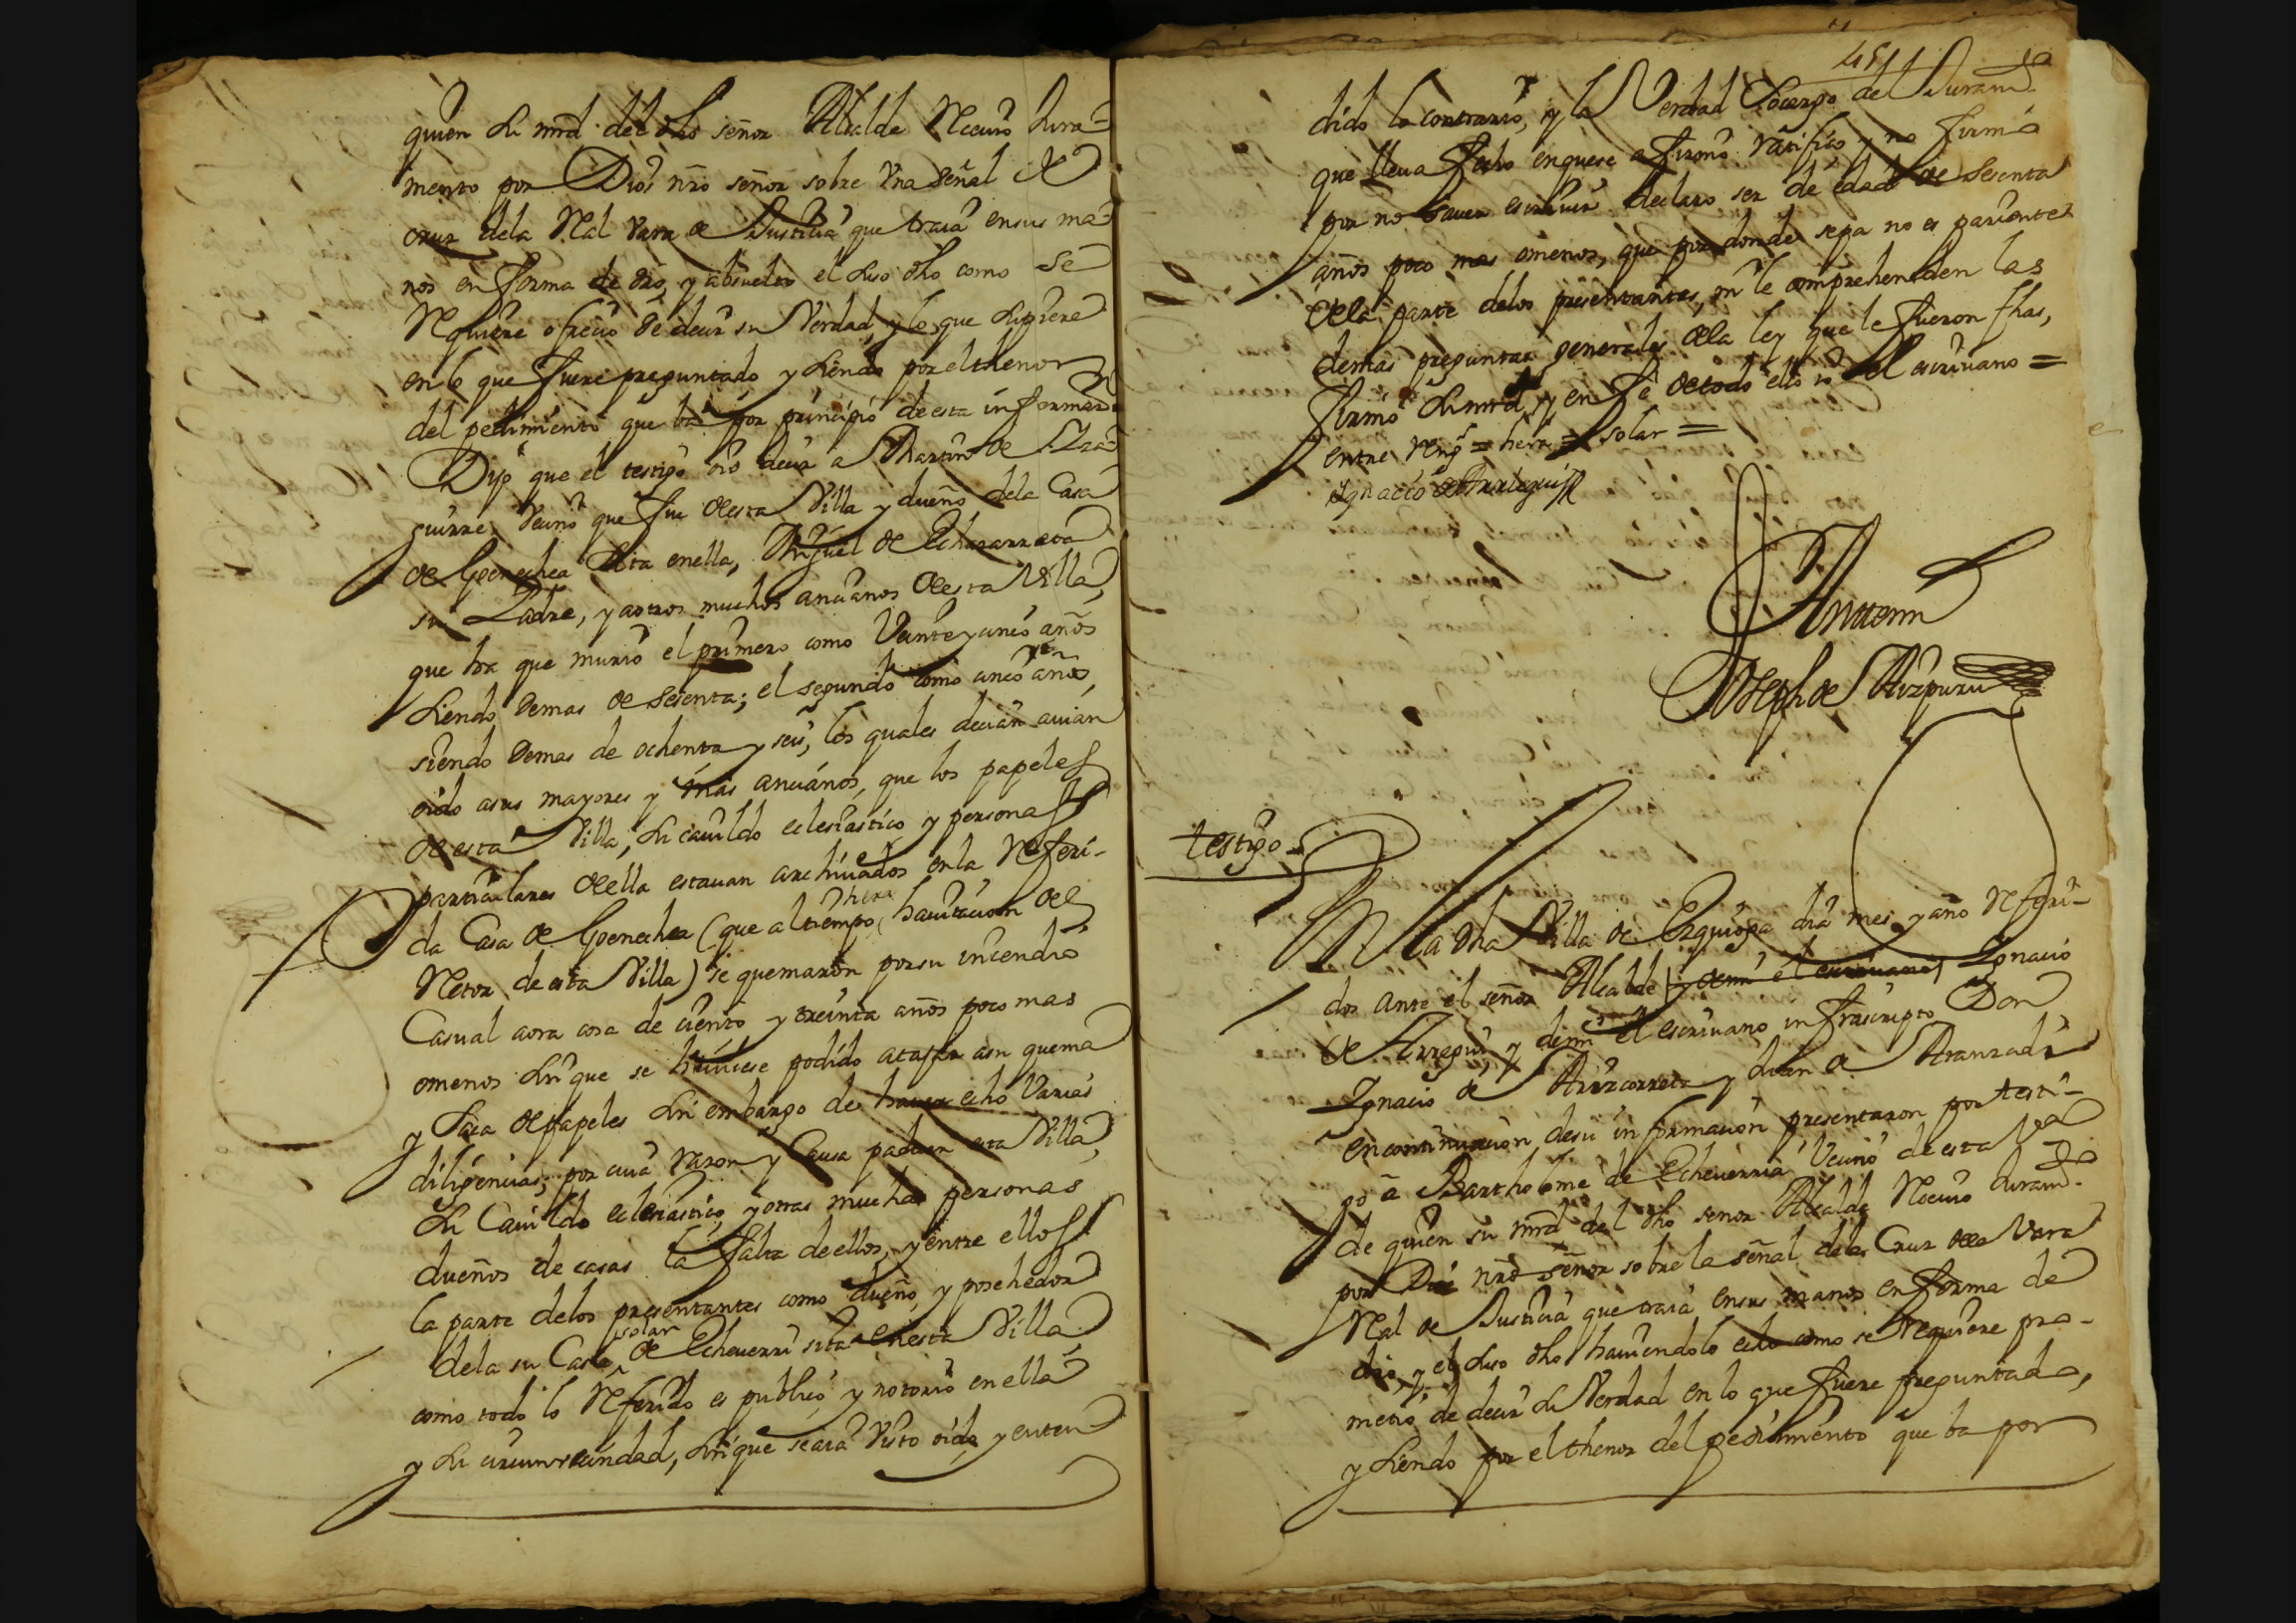 quien su mrd del dho señor Alcalde Recivio Jura-
mento por Dios nro señor sobre Vna señal de
cruz dela Real Vara de Justicia que traia ensus ma-
nos en forma de dro, y absuelto el suso dho como se
Requiere ofrecio de decir su Verdad, y lo que supiere
en lo que fuere preguntado, y siendo por el thenor
del pedimiento que ba por principio de esta informaon
Dijo que el testigo oio decir a Martin de
Vecino que fue de esta Villa y dueño dela Casa
de Goenechea sita en ella, Miguel de Echazarreta
su Padre, y aotros muchos ancianos de esta Villa,
que ha que murio el primero como Veinte y cinco años
siendo demas de sesenta; el segundo como cinco años,
siendo demas de ochenta y seis, los quales decian avian
oido asus mayores y mas ancianos, que los papeles
de esta Villa, su cavildo eclesiastico y personas
particulares de ella estavan archivados en la Referi-
da Casa de Goenechea (que al tiempo hera havitacion del
Retor de esta Villa) se quemaron por su incendio
Casual aora cosa de ciento y treinta años poco mas
omenos sin que se huviese podido atajar asu quema
y saca de papeles sin embargo de haver echo Varias
diligencias, por cuia razon y Causa padecen esta Villa,
su Cavildo eclesiastico, y otras muchas personas
dueños de casas la falta de ellos, y entre ellos
la parte delos presentantes como dueño, y posehedor
dela su Casa solar de Echeverri sita en esta Villa
como todo lo Referido es publico, y notorio en ella
y su circunvecindad, sin que se aia Visto oido, y enten
451
dido lo contrario, y la Verdad socargo del Juramto
que lleva fecho enquese afirmó ratificó, y no firmó
por no saver escrivir declaro ser de edad de sesenta
años poco mas omenos, que por donde sepa no es pariente
dela parte delos presentantes, ni le comprehenden las
demas preguntas generales dela ley que le fueron fhas,
firmó su mrd, y en fe de todo ello yo el escrivano =
entre Rengs = hera = solar =
Ignacio de Aurregui
Ante mi
Joseph de Aizpuru
testigo
En la dha Villa de Ezquioga dia mes y año Referi-
dos ante el señor Alcalde y de mi el escrivano Ignacio
de Aurregui, y demi el escrivano infrascripto Don
Ignacio de Arizcorreta y Juan de Aranzadi
en continuacion desu informacion presentaron por testi-
go a Bartholome de Echeverria Vecino de esta Va
de quien su mrd del dho señor Alcalde Recivio Juramto
por Dios nro señor sobre la señal dela Cruz dela Vara
Real de Justicia que traia ensus manos en forma de
dro, y el suso dho haviendolo echo como se requiere pro-
metio de decir su Verdad en lo que fuere preguntado,
y siendo por el thenor del pedimiento que ba por